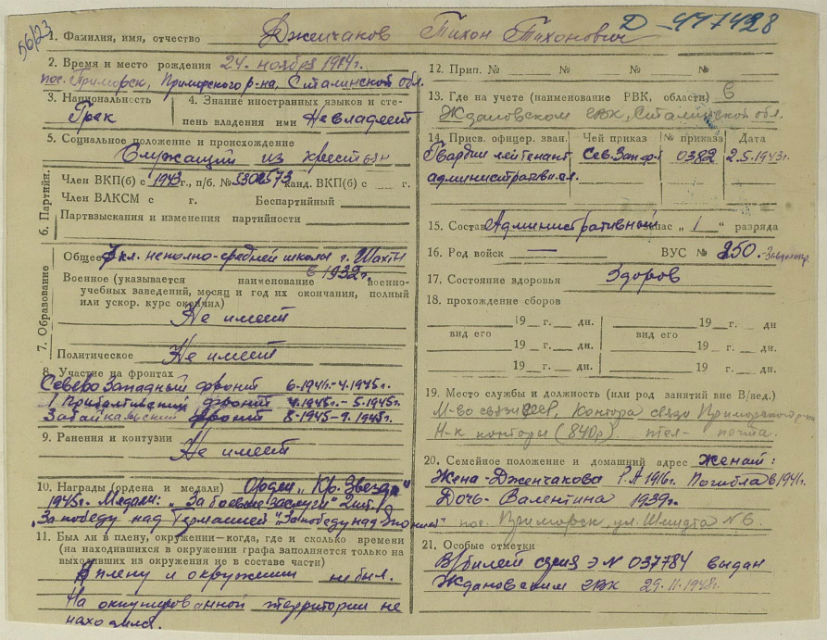 56/23
Д-477428
1. Фамилия, имя, отчество Дженчаков Тихон Тихонович
2. Время и место рождения 24 ноября 1914г.
пос. Приморск, Приморского р-на, Сталинской обл.
3. Национальность Грек
4. Знание иностранных языков и сте-
пень владения ими Не владеет
5. Социальное положение и происхождение
Служащий из крестьян
6. Партийн.
Член ВКП(б) с 1943 г., п/б. № 5302573 канд. ВКП(б) с г.
Член ВЛКСМ с г. Беспартийный
Партвзыскания и изменения партийности
7. Образование
Общее 7 кл. неполно-средней школы г. Шахты
в 1932г.
Военное (указывается наименование военно-
учебных заведений, месяц и год их окончания, полный
или ускор. курс окончил)
Не имеет
Политическое Не имеет
8. Участие на фронтах
Северо Западный фронт 6-1941-4.1945г.
1 Прибалтийский фронт 4.1945г.-5.1945г.
Забайкальский фронт 8-1945-9.1945г.
9. Ранения и контузии
Не имеет
10. Награды (ордена и медали) Орден „Кр. Звезда"
1945г. Медали: „За боевые заслуги" 2шт.
„За победу над Германией" „За победу над Японией"
11. Был ли в плену, окружении—когда, где и сколько времени
(на находившихся в окружении графа заполняется только на
выходивших из окружения не в составе части)
В плену и окружении не был.
На оккупированной территории не
находился.
12. Прип. № № № №
13. Где на учете (наименование РВК, области) В
Ждановском ГВК, Сталинской обл.
14. Присв. офицер. зван. Чей приказ № приказа Дата
Гвардии лейтенант Сев.Зап.ф-т 0382 2.5.1943г.
административн.сл.
15. Состав Административный час „ 1 " разряда
16. Род войск — ВУС № 250.
17. Состояние здоровья Здоров
18. прохождение сборов
19 г. дн. 19 г. дн
вид его вид его
19 г. дн. 19 г. дн.
19 г. дн. 19 г. дн.
19. Место службы и должность (или род занятий вне В/вед.)
М-во связи СССР, Контора связи Приморского р-на
Н-к конторы (840р). почта.
20. Семейное положение и домашний адрес Женат:
Жена-Дженчакова 1916г. Погибла в 1941г.
Дочь- Валентина 1939г.
пос. Приморск, ул. Шмидта N 6.
21. Особые отметки
В/билет серия Э N 037784 выдан
Ждановским ГВК 29.11.1948г.